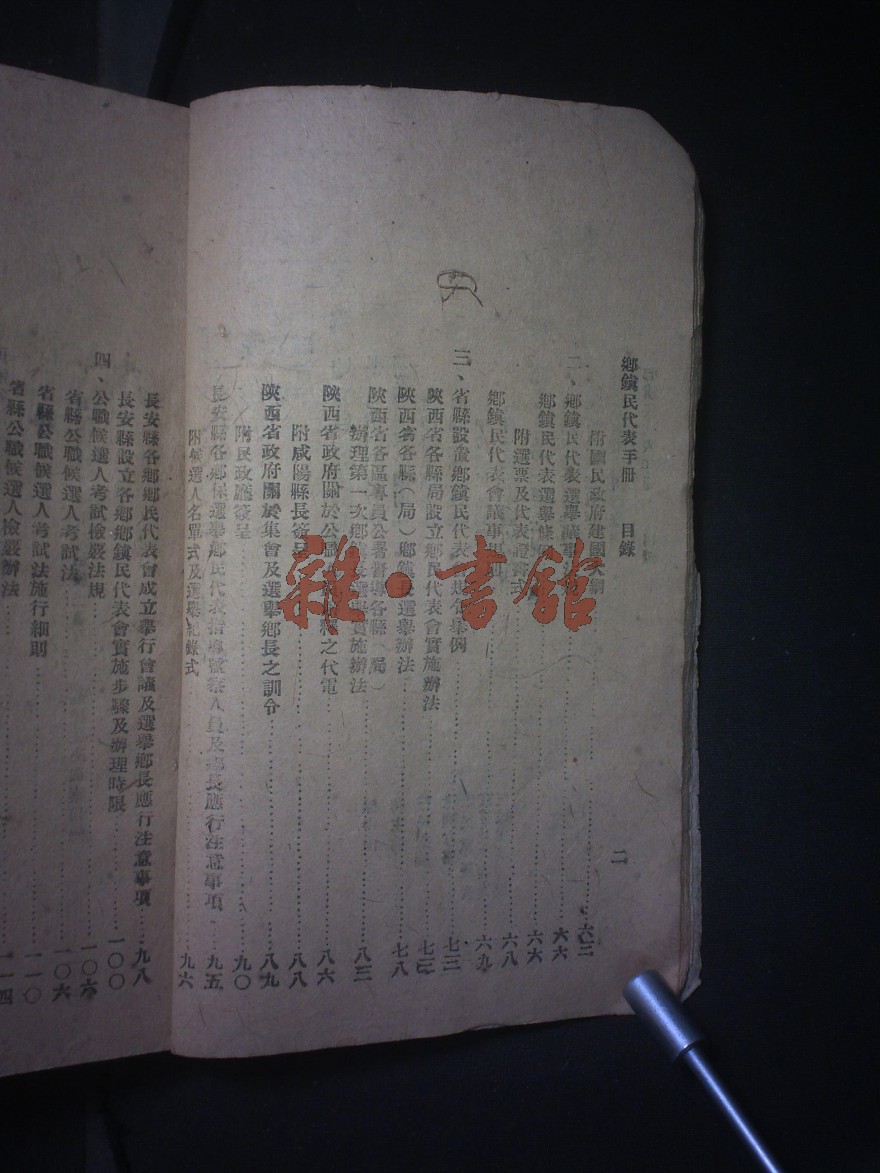 鄉鎮民代表手冊 目錄 二
附國民政府建國大綱……六三
二、鄉鎮民代表選舉議事……六六
鄉鎮民代表選舉條……六六
附選票及代表證書式……六八
鄉鎮民代表會議事規則……六九
三、省縣設置鄉鎮民代表……規各舉例……七三
陝西省各縣局設立鄉民代表會實施辦法……七三
陝西省各縣(局)鄉鎮長選舉辦法……七八
陝西省各區專員公署督導各縣(局)
辦理第一次鄉鎮長選舉實施辦法……八三
陝西省政府關於公職……之代電……八六
附咸陽縣長簽呈……八八
陝西省政府關於集會及選舉鄉長之訓令……八九
附民政廳簽呈……九〇
長安縣各鄉保選舉鄉民代表指導監察人員及鄉長應行注意事項……九五
附候選人名單式及選舉紀錄式……九六
長安縣各鄉鄉民代表會成立舉行會議及選舉鄉長應行注意事項……九八
長安縣設立各鄉鄉鎮民代表會實施步驟及辦理時限……一〇〇
四、公職候選人考試檢覈法規……一〇六
省縣公職候選人考試法……一〇六
省縣公職候選人考試法施行細則……一一〇
省縣公職候選人檢覈辦法……一一四
雜·書館